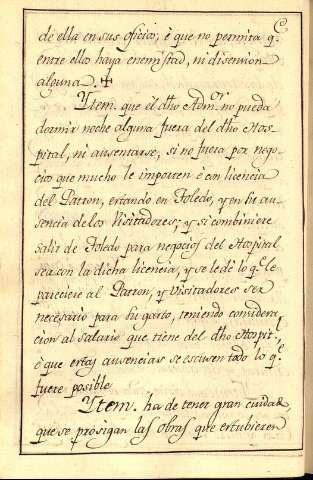 de ella en sus oficios, è que no permita q.
entre ellos haya enemistad, ni disension
alguna. ✠
Ytem. que el dho Adm.or no pueda
dormir noche alguna fuera del dho Hos-
pital, ni ausentarse, si no fuera por nego-
cios que mucho le importen è con licencia
del Patron, estando en Toledo, y en su au-
sencia de los Visitadores; y si combiniere
salir de Toledo para negocios del Hospital
sea con la dicha licencia, y se le dè lo q.e le
pareciere al Patron, y Visitadores ser
necesario para su gasto, teniendo considera
cion al salario que tiene del dho Hospit.l
è que estas ausencias se escusen todo lo q.e
fuere posible
Ytem. ha de tener gran cuidad.o,
que se prosigan las obras que estubieren